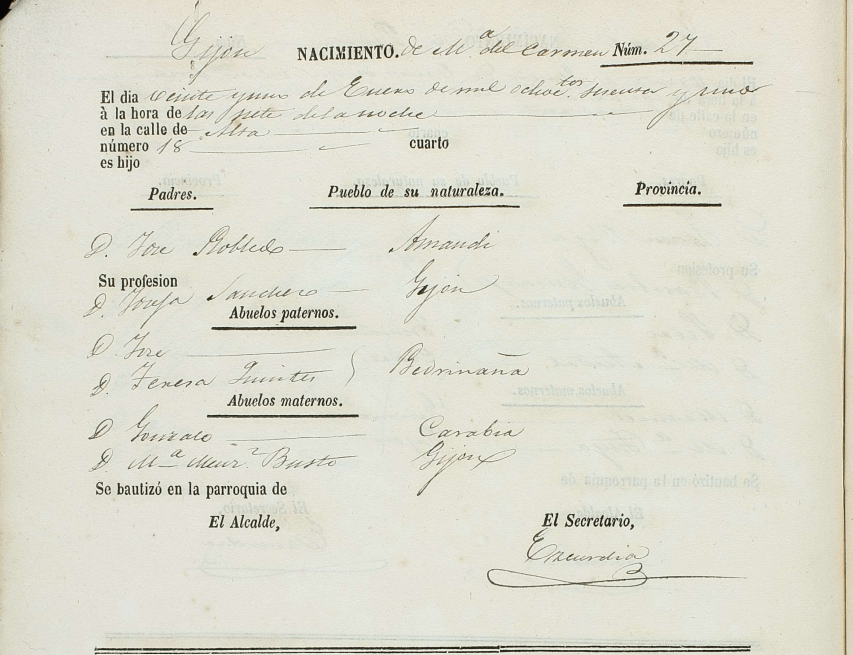 Gijon NACIMIENTO. de Mª del Carmen Núm. 27
El dia veinte y uno de Enero de mil ochoctos sesenta y uno
à la hora de las siete de la noche
en la calle de Alta
número 18 cuarto
es hijo
Padres. Pueblo de su naturaleza. Provincia.
D. Jose Robledo Amandi
Su profesion
D. Josefa Sanchez Gijon
Abuelos paternos.
D. Jose
D. Teresa Quintes Bedriñana
Abuelos maternos.
D Gonzalo Carabia
D. Mª Busto Gijon
Se bautizó en la parroquia de
El Alcalde, El Secretario,
Ezcurdia